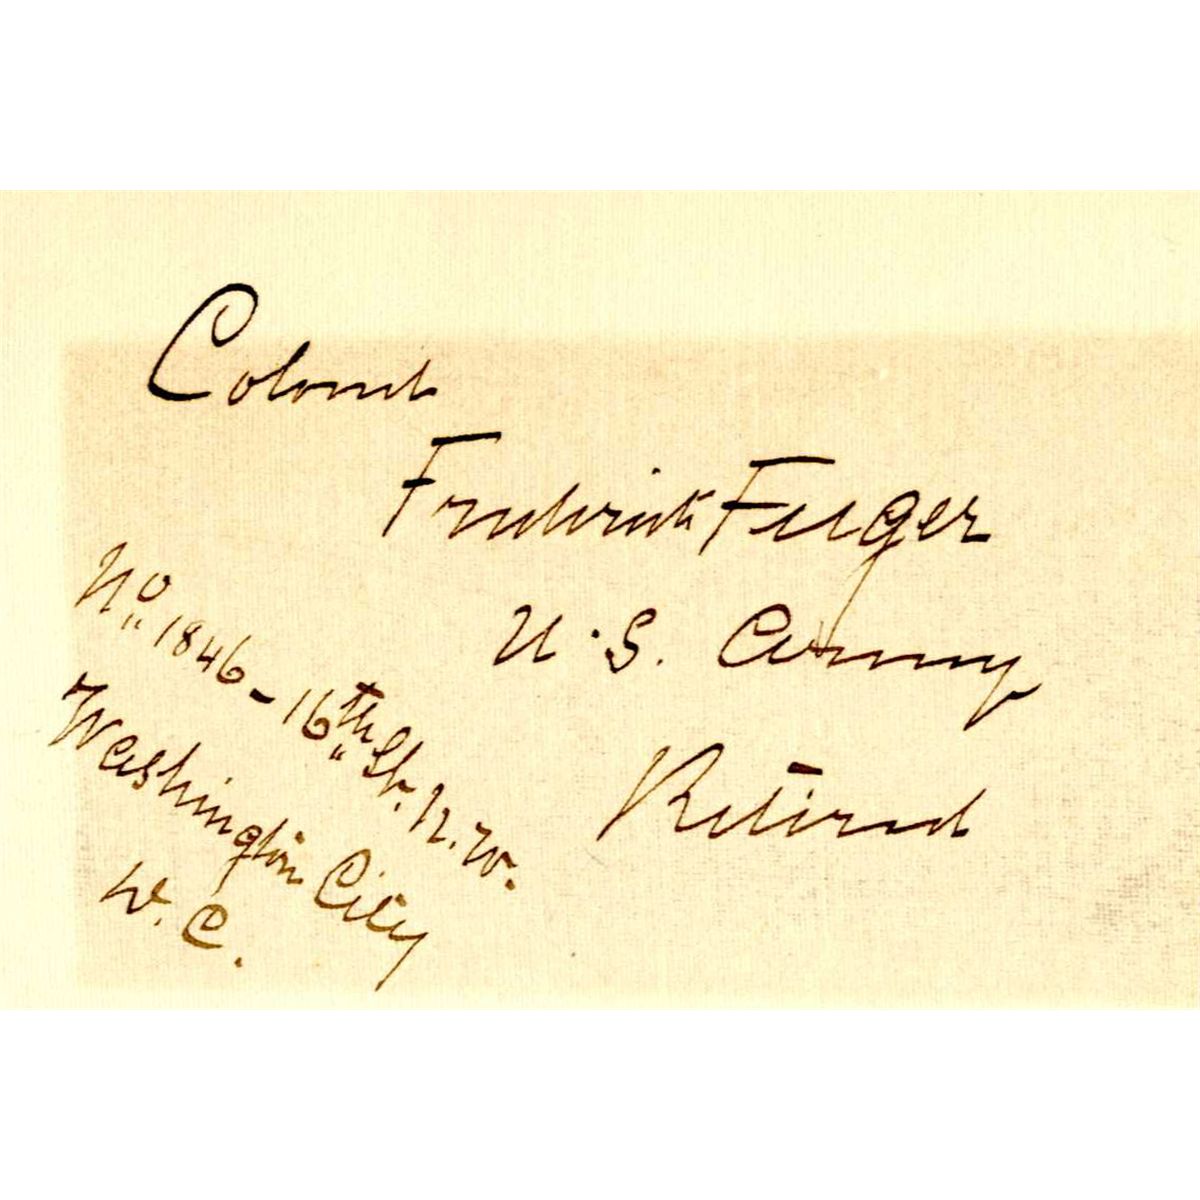 Colonel
Frederick Fuger
U.S. Army
Retired
No. 1846 - 16th St. N.W.
Washington City
D.C.